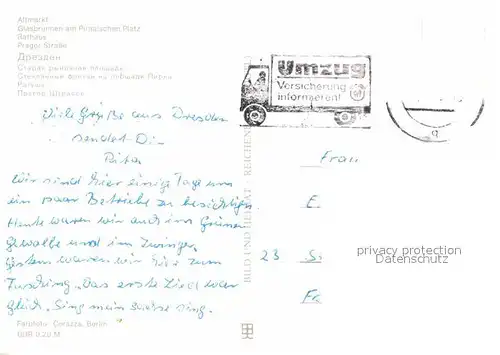 Altmarkt
Glasbrunnen am Pirnaischen Platz
Rathaus
Prager Straße
Дрезден
Старая рыночная площадь
Стеклянный фонтан на площади Пирна
Ратуша
Umzug
Versicherung
informieren!
Viele Grüße aus Dresden
sendet Dir
Rita
Wir sind hier einige Tage um
ein paar Betriebe zu besichtigen.
Heute waren wir auch im Grünen
Gewölbe und im Zwinger.
Gestern waren wir hier zum
Fasching. "Das erste Lied war
Frau
E.
23 S.
Fr
privacy protection
Datenschutz
BILD UND HEIMAT REICHENBACH
Farbfoto: Corazza, Berlin
0,20 M